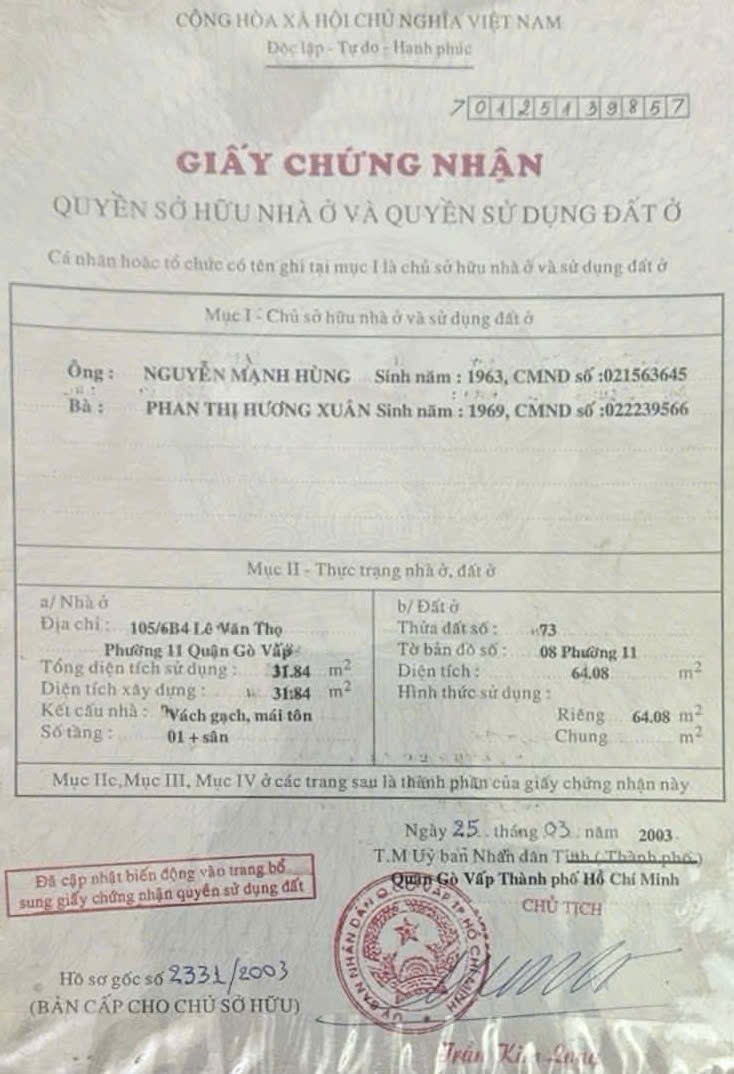 CỘNG HÒA XÃ HỘI CHỦ NGHĨA VIỆT NAM
Độc lập - Tự do - Hạnh phúc
70125139857
GIẤY CHỨNG NHẬN
QUYỀN SỞ HỮU NHÀ Ở VÀ QUYỀN SỬ DỤNG ĐẤT Ở
Cá nhân hoặc tổ chức có tên ghi tại mục I là chủ sở hữu nhà ở và sử dụng đất ở
Mục I - Chủ sở hữu nhà ở và sử dụng đất ở
Ông : NGUYỄN MẠNH HÙNG Sinh năm : 1963, CMND số :021563645
Bà : PHAN THỊ HƯƠNG XUÂN Sinh năm : 1969, CMND số :022239566
Mục II - Thực trạng nhà ở, đất ở
a/ Nhà ở
Địa chỉ : 105/6B4 Lê Văn Thọ
Phường 11 Quận Gò Vấp
Tổng diện tích sử dụng : 31.84 m²
Diện tích xây dựng : 31.84 m²
Kết cấu nhà : Vách gạch, mái tôn
Số tầng : 01 + sân
b/ Đất ở
Thửa đất số : 73
Tờ bản đồ số : 08 Phường 11
Diện tích : 64.08 m²
Hình thức sử dụng :
Riêng 64.08 m²
Chung m²
Mục IIc, Mục III, Mục IV ở các trang sau là thành phần của giấy chứng nhận này
Ngày 25 tháng 03 năm 2003
T.M Uỷ ban Nhân dân Tỉnh ( Thành phố )
Quận Gò Vấp Thành phố Hồ Chí Minh
CHỦ TỊCH
Đã cập nhật biến động vào trang bổ
sung giấy chứng nhận quyền sử dụng đất
ỦY BAN NHÂN DÂN Q. GÒ VẤP TP HỒ CHÍ MINH
Hồ sơ gốc số 2331/2003
(BẢN CẤP CHO CHỦ SỞ HỮU)
Trần Kim